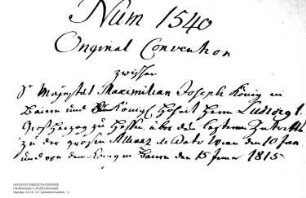 Num 1540
Original Convention
zwischen
Sr Majestät Maximilian Joseph König in
Baiern und Sr Königl. Hoheit Herrn Ludwig I.
Großherzog zu Hessen über des letztern Zutritt
zu der großen Allianz de Dato Wien den 10 Jan
und von dem König in Baiern den 15 Jener 1815